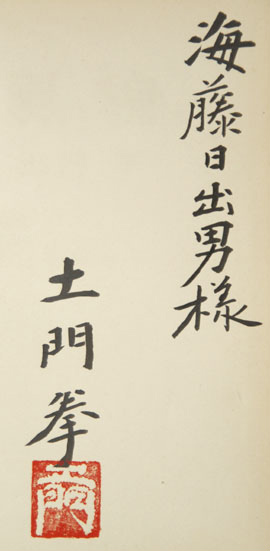 海藤日出男様
土門拳